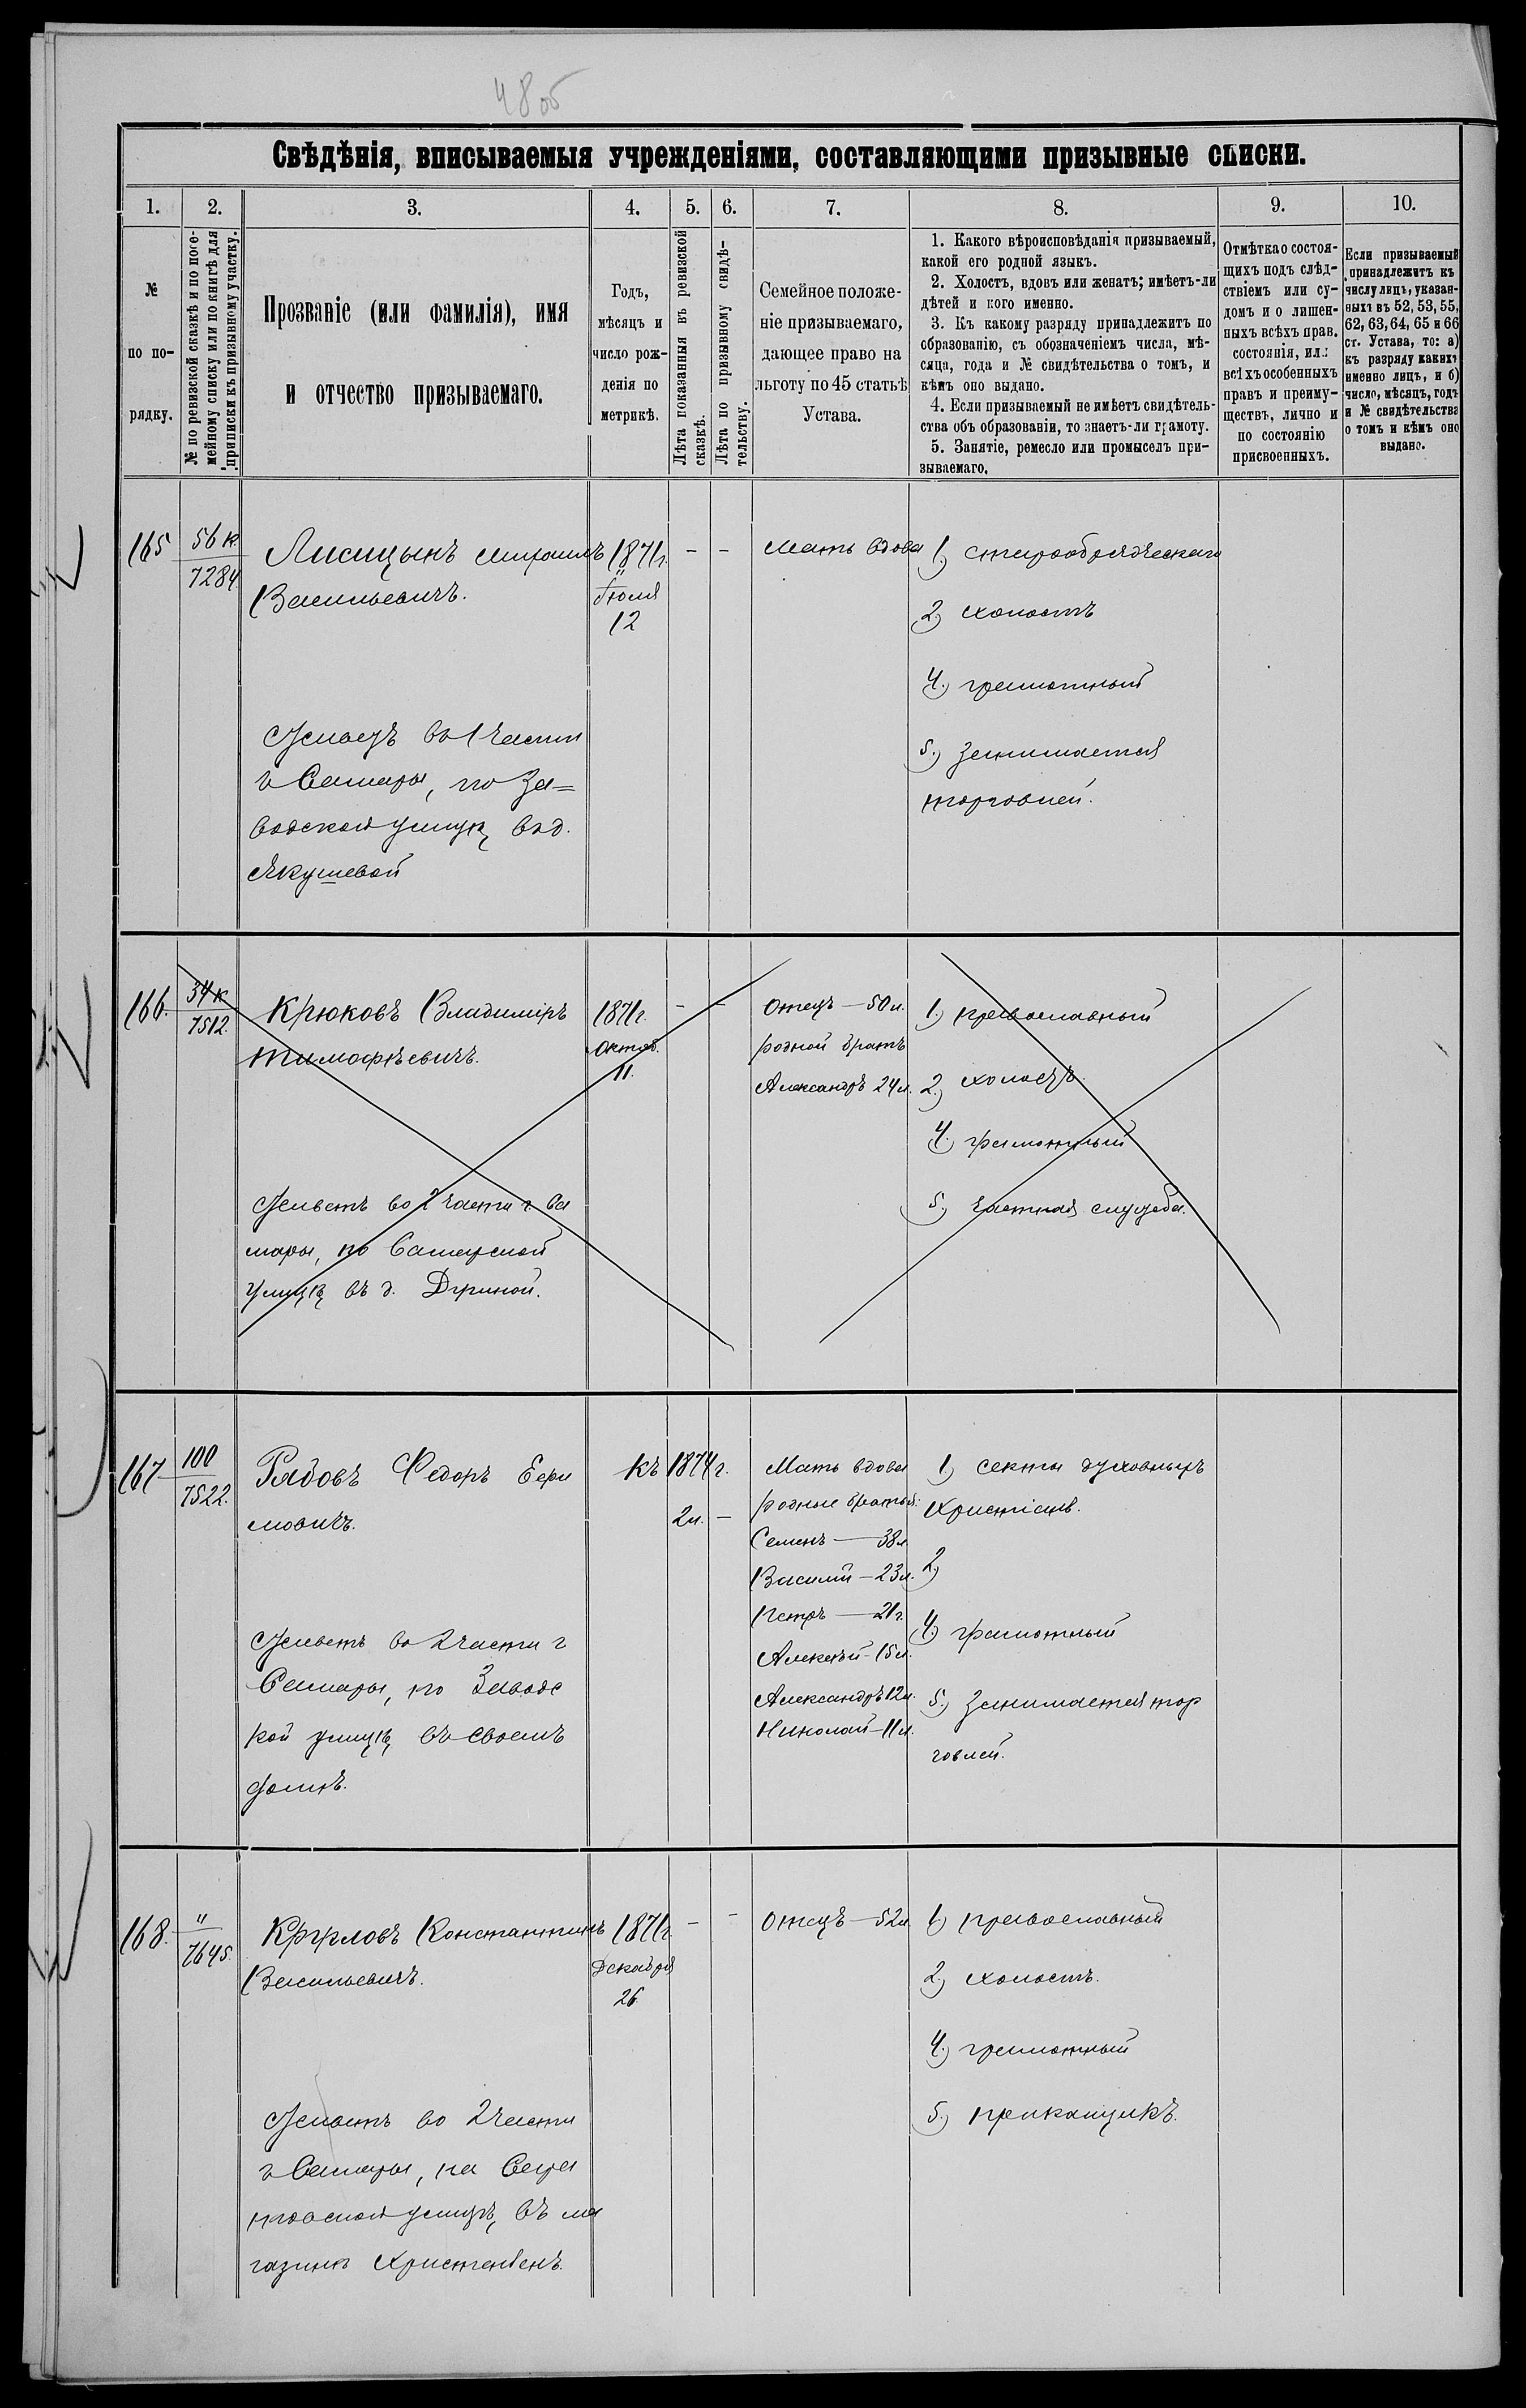 48 об
Свѣдѣнія, вписываемыя учрежденіями, составляющими призывные списки.
1. 2. 3. 4. 5. 6. 7. 8. 9. 10.
№
по по-
рядку.
№ по ревизской сказкѣ и по посе-
мейному списку или по книгѣ для
приписки къ призывному участку.
Прозваніе (или фамилія), имя
и отчество призываемаго.
Годъ,
мѣсяцъ и
число рож-
денія по
метрикѣ.
Лѣта показанныя въ ревизской
сказкѣ.
Лѣта по призывному свидѣ-
тельству.
Семейное положе-
ніе призываемаго,
дающее право на
льготу по 45 статьѣ
Устава.
1. Какого вѣроисповѣданія призываемый,
какой его родной языкъ.
2. Холостъ, вдовъ или женатъ; имѣетъ-ли
дѣтей и кого именно.
3. Къ какому разряду принадлежитъ по
образованію, съ обозначеніемъ числа, мѣ-
сяца, года и № свидѣтельства о томъ, и
кѣмъ оно выдано.
4. Если призываемый не имѣетъ свидѣтель-
ства объ образованіи, то знаетъ-ли грамоту.
5. Занятіе, ремесло или промыселъ при-
зываемаго.
Отмѣтка о состоя-
щихъ подъ слѣд-
ствіемъ или су-
домъ и о лишен-
ныхъ всѣхъ прав.
состоянія, или
всѣхъ особенныхъ
правъ и преиму-
ществъ, лично и
по состоянію
присвоенныхъ.
Если призываемый
принадлежитъ къ
числу лицъ, указан-
ныхъ въ 52, 53, 55,
62, 63, 64, 65 и 66
ст. Устава, то: а)
къ разряду какихъ
именно лицъ, и б)
число, мѣсяцъ, годъ
и № свидѣтельства
о томъ и кѣмъ оно
выдано.
165
56 к
7284
Лисицынъ
Васильевичъ.
Живетъ во 1 части
г Самары, по За=
водской улицѣ, в д.
Якушевой
1871 г.
Іюля
12
- -
Мать вдова
1) старообрядческаго
2) холостъ
4.) грамотный
5.) Занимается
торговлей.
166.
34 к
7512.
Крюковъ Владиміръ
Тимофѣевичъ.
Живетъ во 2 части г Са
мары, по Самарской
улицѣ въ д.
1871 г.
Октяб.
11.
- -
Отецъ — 50 л.
родной братъ
Александръ 24 л.
1.) православный
2.) холостъ.
4.) грамотный
5.) частная служба.
167
100
7522.
Рябовъ Федоръ Ефи
мовичъ.
Живетъ во 2 части г
Самары, по Заводс
кой улицѣ, въ своемъ
домѣ.
къ 1874 г.
2 л. -
Мать вдова
родные братья:
Семенъ — 38 л
Василій — 23 л.
Петръ — 21 г.
Алексѣй — 15 л.
Александръ 12 л.
Николай — 11 л.
1) секты духовныхъ
Христіанъ.
2)
4.) грамотный
5.) Занимается тор
говлей.
168.
"
7645.
Круговъ Константинъ
Васильевичъ.
Живетъ во 2 части
г Самары, на
улицѣ, въ ма
газинѣ Христензенъ.
1871 г.
Декабря
26
- -
Отецъ — 52 л.
1) православный
2) холостъ.
4.) грамотный
5.) прикащикъ.